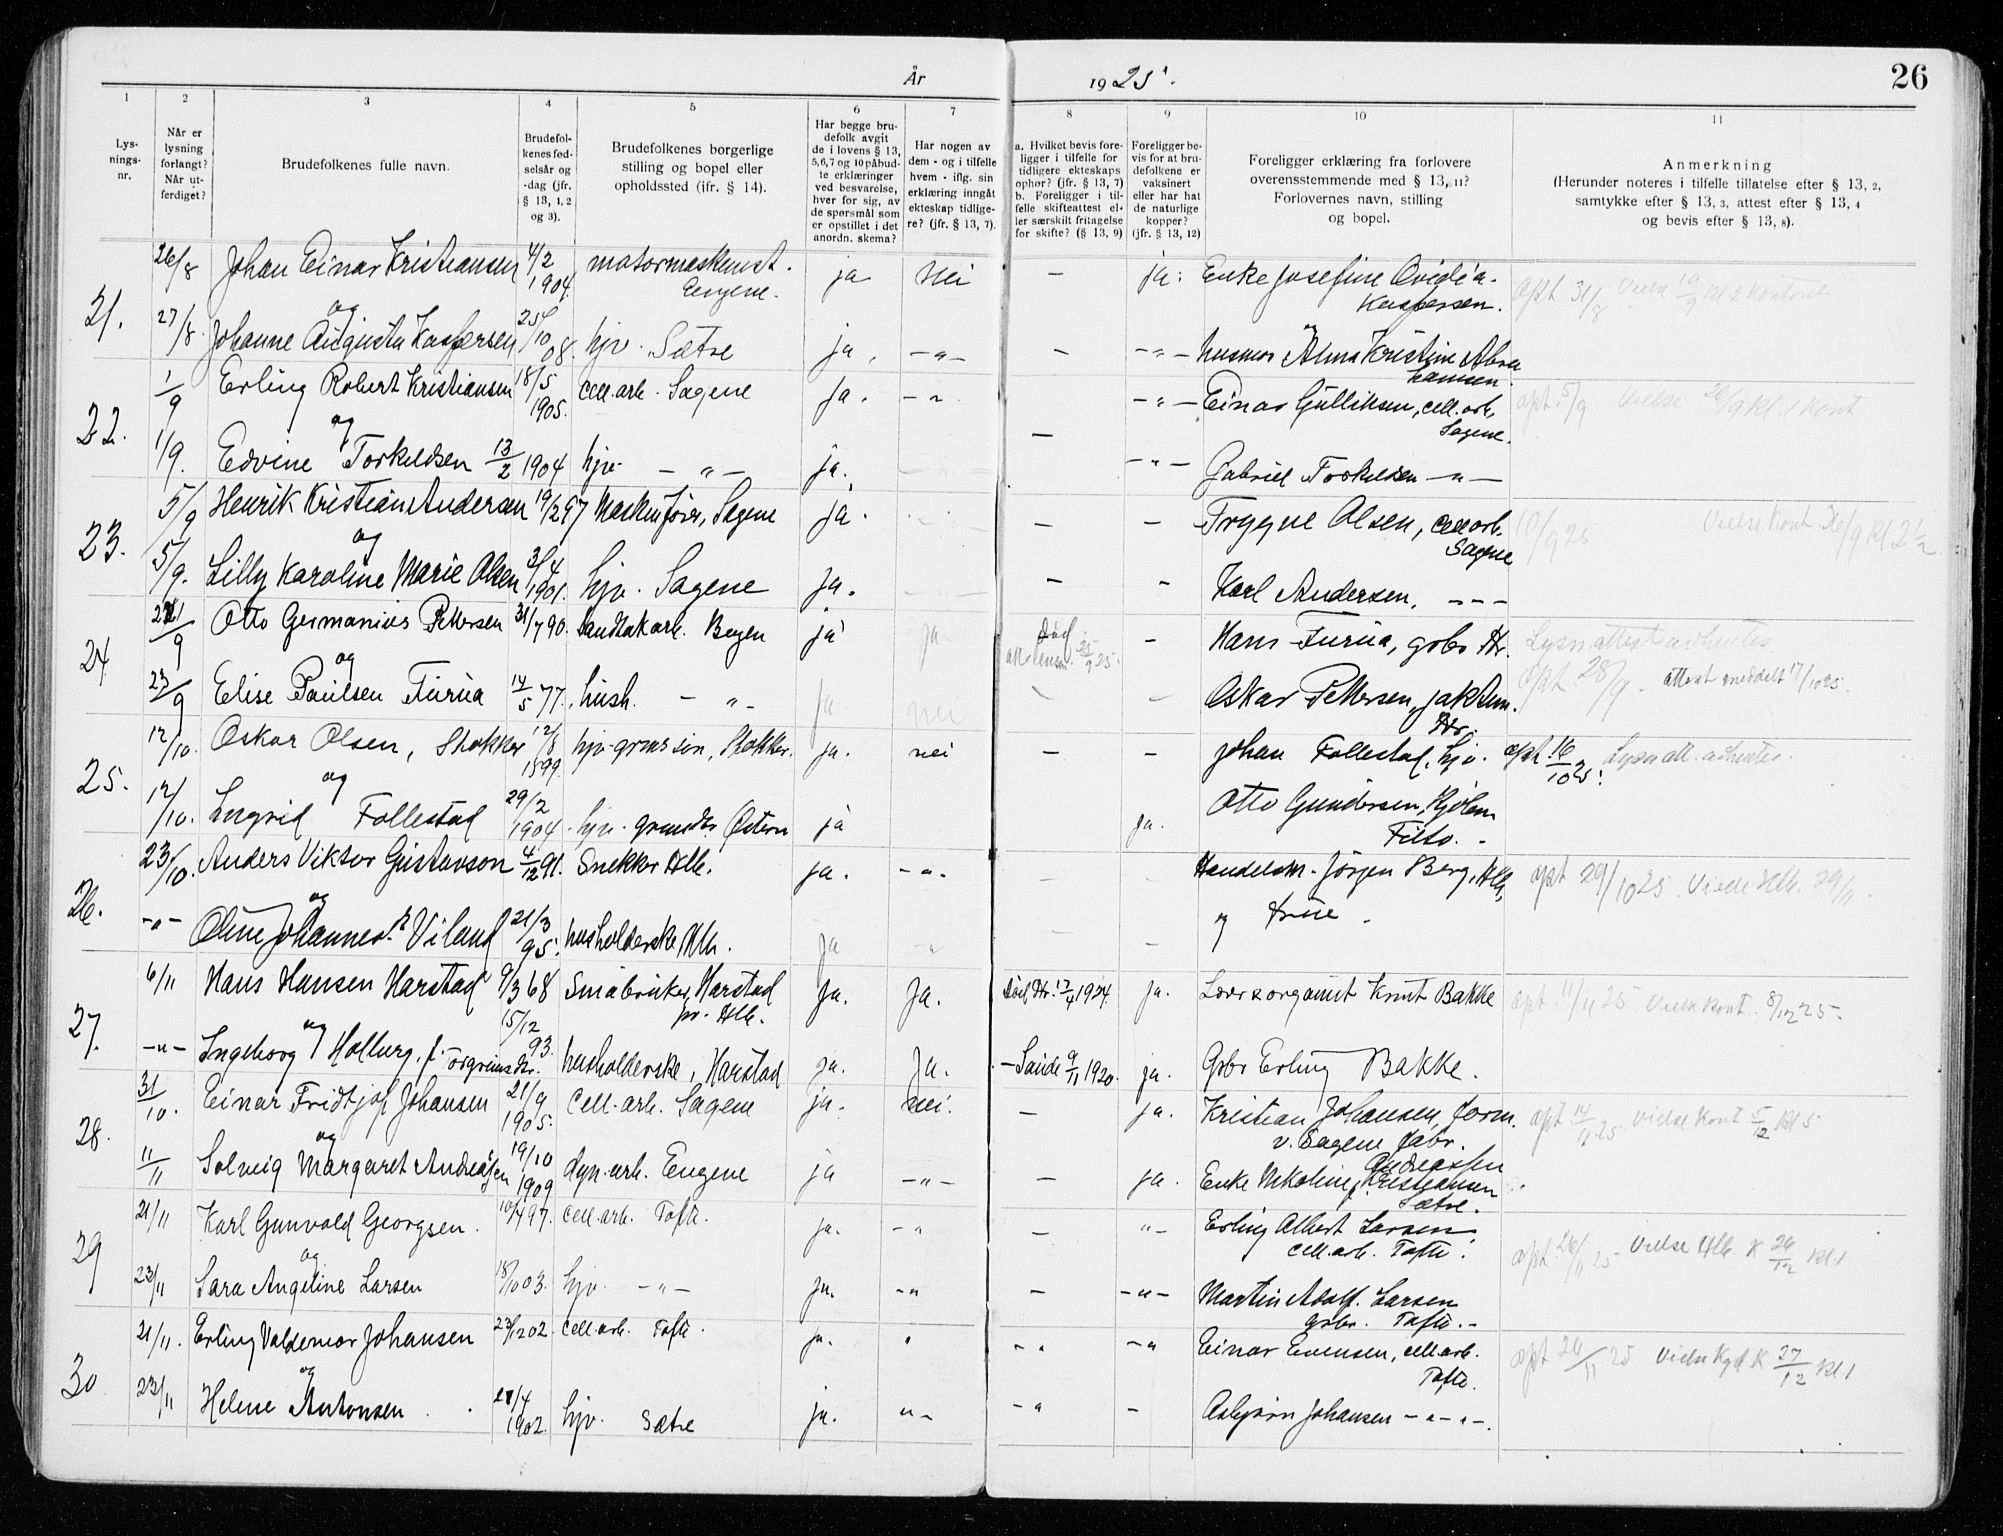 År 1925.
26
1 2 3 4 5 6 7 8 9 10 11
Lysnings-nr.
Når er lysning forlangt? Når utferdiget?
Brudefolkenes fulle navn.
Brudefolkenes fødselsår og -dag (jfr. § 13, 1, 2 og 3).
Brudefolkenes borgerlige stilling og bopel eller opholdssted (jfr. § 14).
Har begge brudefolk avgit de i lovens § 13, 5, 6, 7 og 10 påbudte erklæringer ved besvarelse, hver for sig, av de spørsmål som er opstillet i det anordn. skema?
Har nogen av dem - og i tilfelle hvem - iflg. sin erklæring inngått ekteskap tidligere? (jfr. § 13, 7).
a. Hvilket bevis foreligger i tilfelle for tidligere ekteskaps ophør? (jfr. § 13, 7) b. Foreligger i tilfelle skifteattest eller særskilt fritagelse for skifte? (§ 13, 9)
Foreligger bevis for at brudefolkene er vaksinert eller har hat de naturlige kopper? (jfr. § 13, 12)
Foreligger erklæring fra forlovere overensstemmende med § 13, 11? Forlovernes navn, stilling og bopel.
Anmerkning (Herunder noteres i tilfelle tillatelse efter § 13, 2, samtykke efter § 13, 3, attest efter § 13, 4 og bevis efter § 13, 8).
21. 26/8 Johan Einar Kristiansen 4/2 1904. motormaskenist. Engene. ja Nei — ja. Enke Josefine Ovidia Kaspersen. opt 31/8 Vielse 19/9 kl 2 kontoret
og
27/8 Johanne Augusta Kaspersen 25/10 08. hjv. Sætre ja, -"- — -"- husmor Alma Kristine Abrahamsen.
22. 1/9 Erling Robert Kristiansen 18/5 1905. cell.arb. Sagene Ja. -"- -"- Einar Gulliksen, cell.arb. Sagene. opt. 5/9 Vielse 26/9 kl. 1 kont
og
1/9. Edvine Torkildsen 13/2 1904 hjv. -"- ja. — -"- Gabriel Torkildsen -"-
23. 5/9 Henrik Kristian Andersen 19/2 97 Maskinfører, Sagene ja. — - Trygve Olsen, cell.arb. Sagene 10/9 25 Vielse kont. 26/9 kl 2 1/2
og
5/9. Lilly Karoline Marie Olsen 3/4 1901. hjv. Sagene ja. — - Karl Andersen. ---
24. 21/9 Otto Germanius Pettersen 31/7 90. Sandtakarb. Bogen ja ja. Død 25/9 25. - Hans Furua, gbr. Hr. Lysn attest avhentes
og
23/9 Elise Paulsen Furua 14/5 77. hush. -"- ja - - Oskar Pettersen, Hr. opt. 28/9 - attest meddelt 17/10 25.
25. 12/10. Oskar Olsen, Stokker 12/8 1899. hjv. grmssøn, Stokker. ja. nei — - Johan Follestad, hjv. opt 16/10 25. Lysn att. avhentes.
og
12/10. Ingrid Follestad 29/2 1904. hjv. Østern ja ja. Otto Gundersen, Kjølem Filto.
26. 23/10 Anders Viktor Gustavson 4/12 91. Snekker Hlb. ja. -"- - - Handelsm. Jørgen Berg, Hlb, opt 29/10 25 Vielse Hlb. 29/11
og
-"- Oline Johannesd. Viland 21/3 95. husholderske Hlb. ja -"- - - og frue.
27. 6/11 Hans Hansen Harstad 9/3 68 Småbruker, Harstad pr. Hlb. Ja. Ja. Død Hr. 17/4 1924 ja. Lærer & organist Knut Bakke opt. 11/11 25 Vielse kont. 8/12 25.
og
-"- Ingeborg Holberg, f. Torgrimsdtr. 15/12 93. husholderske, Harstad ja. Ja. - Sande 9/11 1920. ja. Gbr Erling Bakke.
28. 31/10. Einar Fridtjof Johansen 21/9 1905. Cell.arb. Sagene ja. Nei. — ja. Kristian Johansen, form. v. Sagene fabr. opt 14/11 25. Vielse kont 5/12 kl 5
og
11/11 Solveig Margaret Andreassen 19/10 1909 dyn.arb. Engene ja -"- — ja. Enke Nikoline Kristiansen Andreassen Sætre.
29 21/11 Karl Gunvald Georgsen. 10/4 97. cell.arb. Tofte. ja. -" — "- Erling Albert Larsen cell.arb. Tofte. opt 26/11 25 - Vielse Hlb K 26/12 kl 1
og
23/11 Sara Angeline Larsen 18/10 03. hjv. -"- ja. -" — -"- Martin Adolf Larsen gbr. Tofte.
30 21/11. Erling Valdemar Johansen 23/12 02. cell.arb. Tofte. ja. " -" -" Einar Evensen, cell.arb. Tofte. opt 26/11 25 Vielse Kgd K 27/12 kl 1
og
23/11 Helene Antonsen 28/4 1902. hjv. Sætre ja. "- -" - Asbjørn Johansen -"-"-.